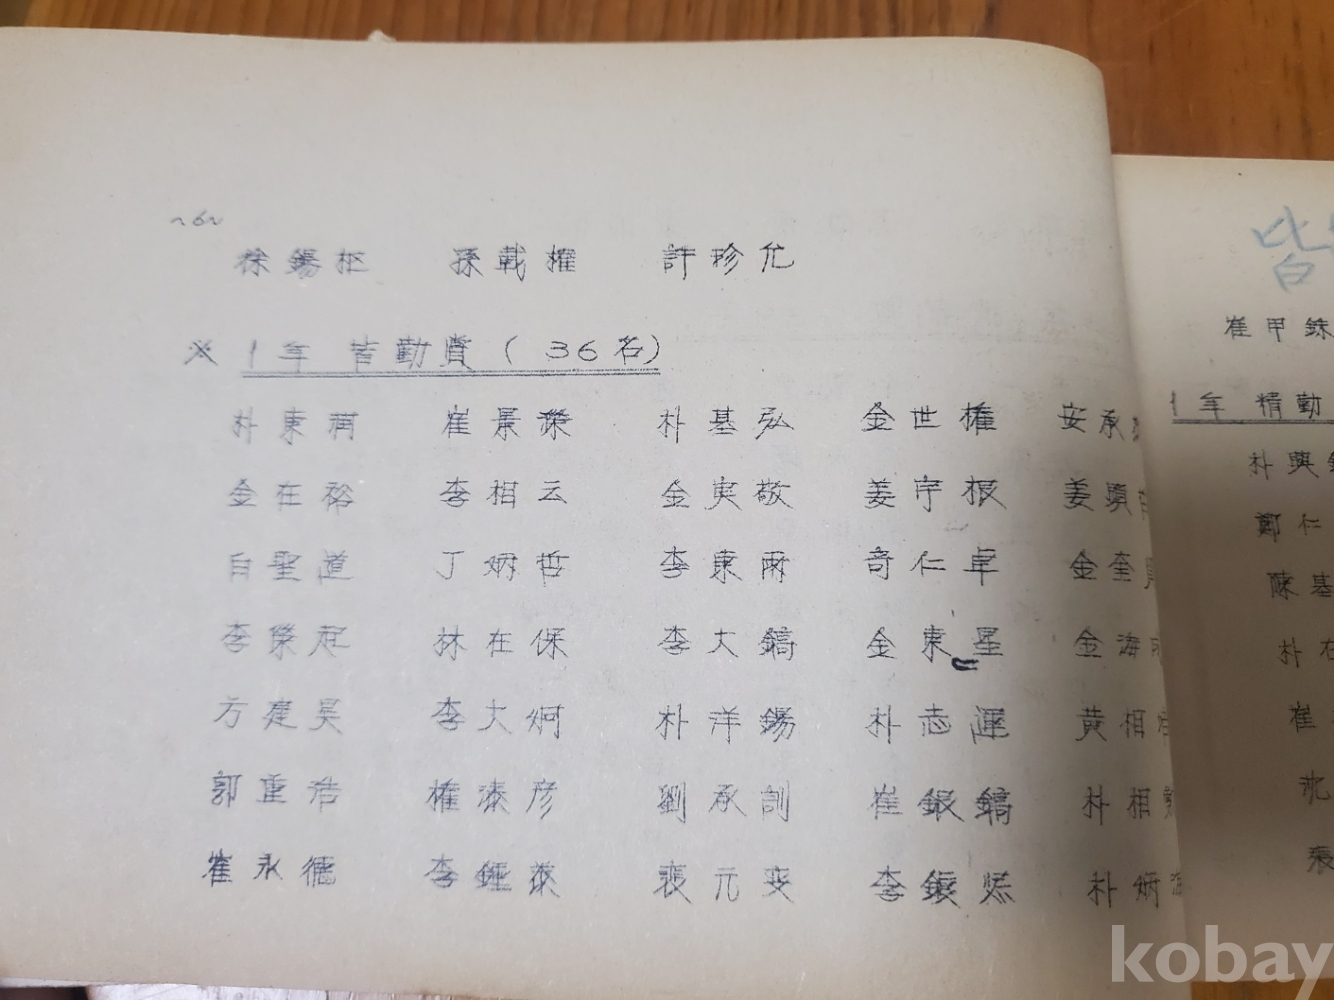 ~6~
徐錫枢 孫載權 許珍允
※ 1年 皆勤賞 (36名)
朴東 崔景榮 朴基弘 金世權 安承
金在裕 李相云 金寅敬 姜宇振 姜
白聖道 丁炳哲 李東雨 奇仁卓 金奎
李榮冠 林在保 李大鎬 金東星 金海
方建昊 李大炯 朴洋錫 朴志運 黄相
郭重浩 權泰彦 劉承訓 崔銀鎬 朴相
崔永德 李鍾泰 裵元奭 李銀烋 朴炳
皆
崔甲銖
1年 精勤
朴興
鄭仁
陳基
朴在
崔
沈
裵
kobay